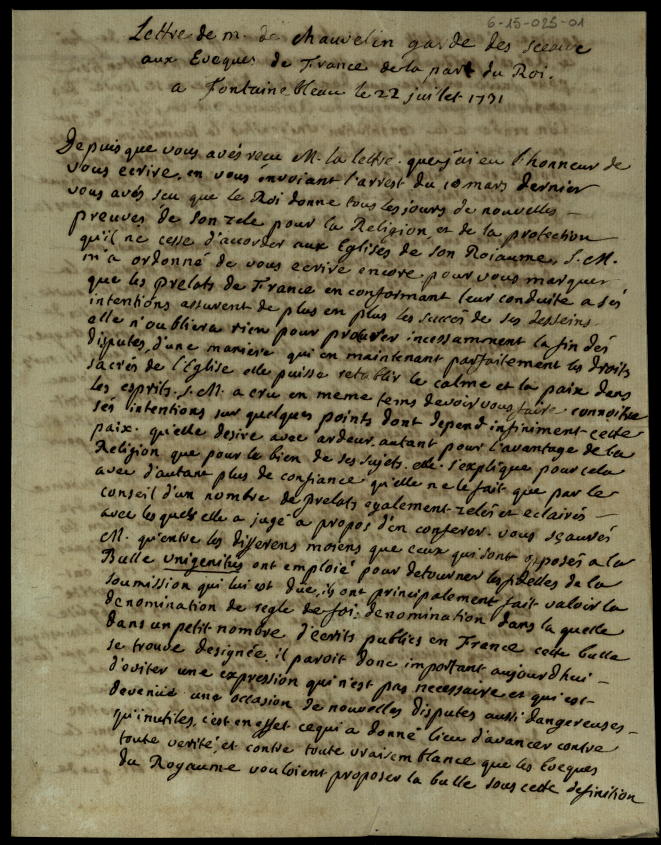 6-15-025-01
Lettre de m. de chauvelin garde des sceaux
aux Eveques de France de la part du Roi.
a Fontainebleau le 22 juillet 1731
Depuis que vous avés recu M. la lettre que j'ai eu l'honneur de
vous ecrire, en vous envoiant l'arrest du 10 mars dernier
vous avés seu que le Roi donne tous les jours de nouvelles
preuves de son zele pour la Religion, et de la protection
qu'il ne cesse d'accorder aux Eglises de son Roiaume, S. M.
m'a ordonné de vous ecrire encore pour vous marquer
que les prelats de France en conformant leur conduite a ses
intentions assurent de plus en plus les succés de ses desseins
elle n'oubliera rien pour procurer incessamment la fin des
disputes, d'une maniere qui en maintenant parfaitement les droits
sacrés de l'Eglise elle puisse retablir le calme et la paix dans
les esprits. S. M. a cru en meme tems devoir vous faire connoitre
ses intentions sur quelques points dont depend infiniment cette
paix. qu'elle desire avec ardeur autant pour l'avantage de la
Religion que pour le bien de ses sujets. elle s'explique pour cela
avec d'autant plus de confiance qu'elle ne le fait que par le
conseil d'un nombre de prelats egalement zelés et eclairés
avec lesquels elle a jugé a propos d'en conferer. vous sçaurés
M. qu'entre les differens moiens que ceux qui sont opposés a la
Bulle unigenitus ont emploié pour detourner les fidelles de la
soumission qui lui est due, ils ont principalement fait valoir la
denomination de regle de foi; denomination dans la quelle
dans un petit nombre d'ecrits publics en France cette bulle
se trouve designée. il paroit donc important aujourd'hui
d'eviter une expression qui n'est pas necessaire et qui est
devenüe une occasion de nouvelles disputes aussi dangereuses
qu'inutiles, c'est en effet ce qui a donné lieu d'avancer contre
toute verité, et contre toute vraisemblance que les Eveques
du Royaume vouloient proposer la bulle sous cette definition